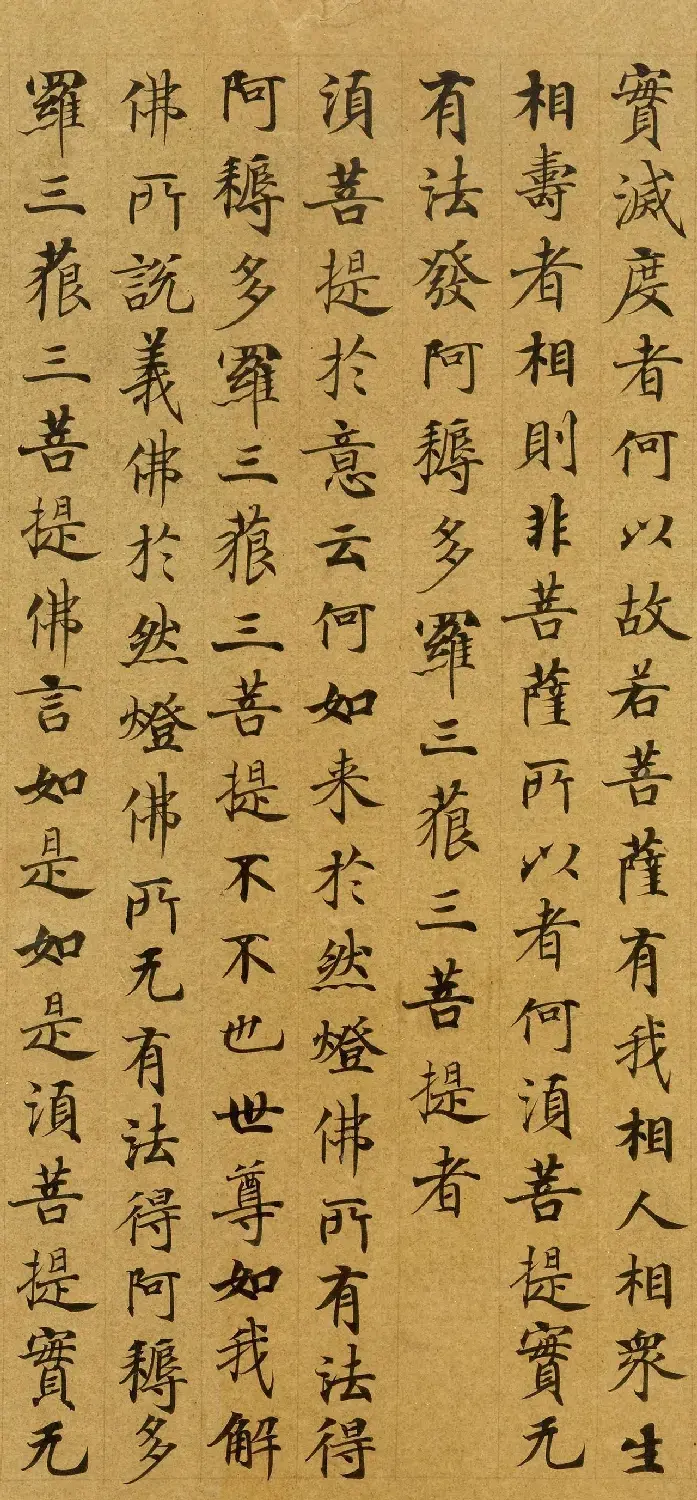 實滅度者何以故若菩薩有我相人相眾生
相壽者相則非菩薩所以者何湏菩提實无
有法發阿耨多羅三藐三菩提者
湏菩提於意云何如来於然燈佛所有法得
阿耨多羅三藐三菩提不不也世尊如我解
佛所說義佛於然燈佛所无有法得阿耨多
羅三藐三菩提佛言如是如是湏菩提實无